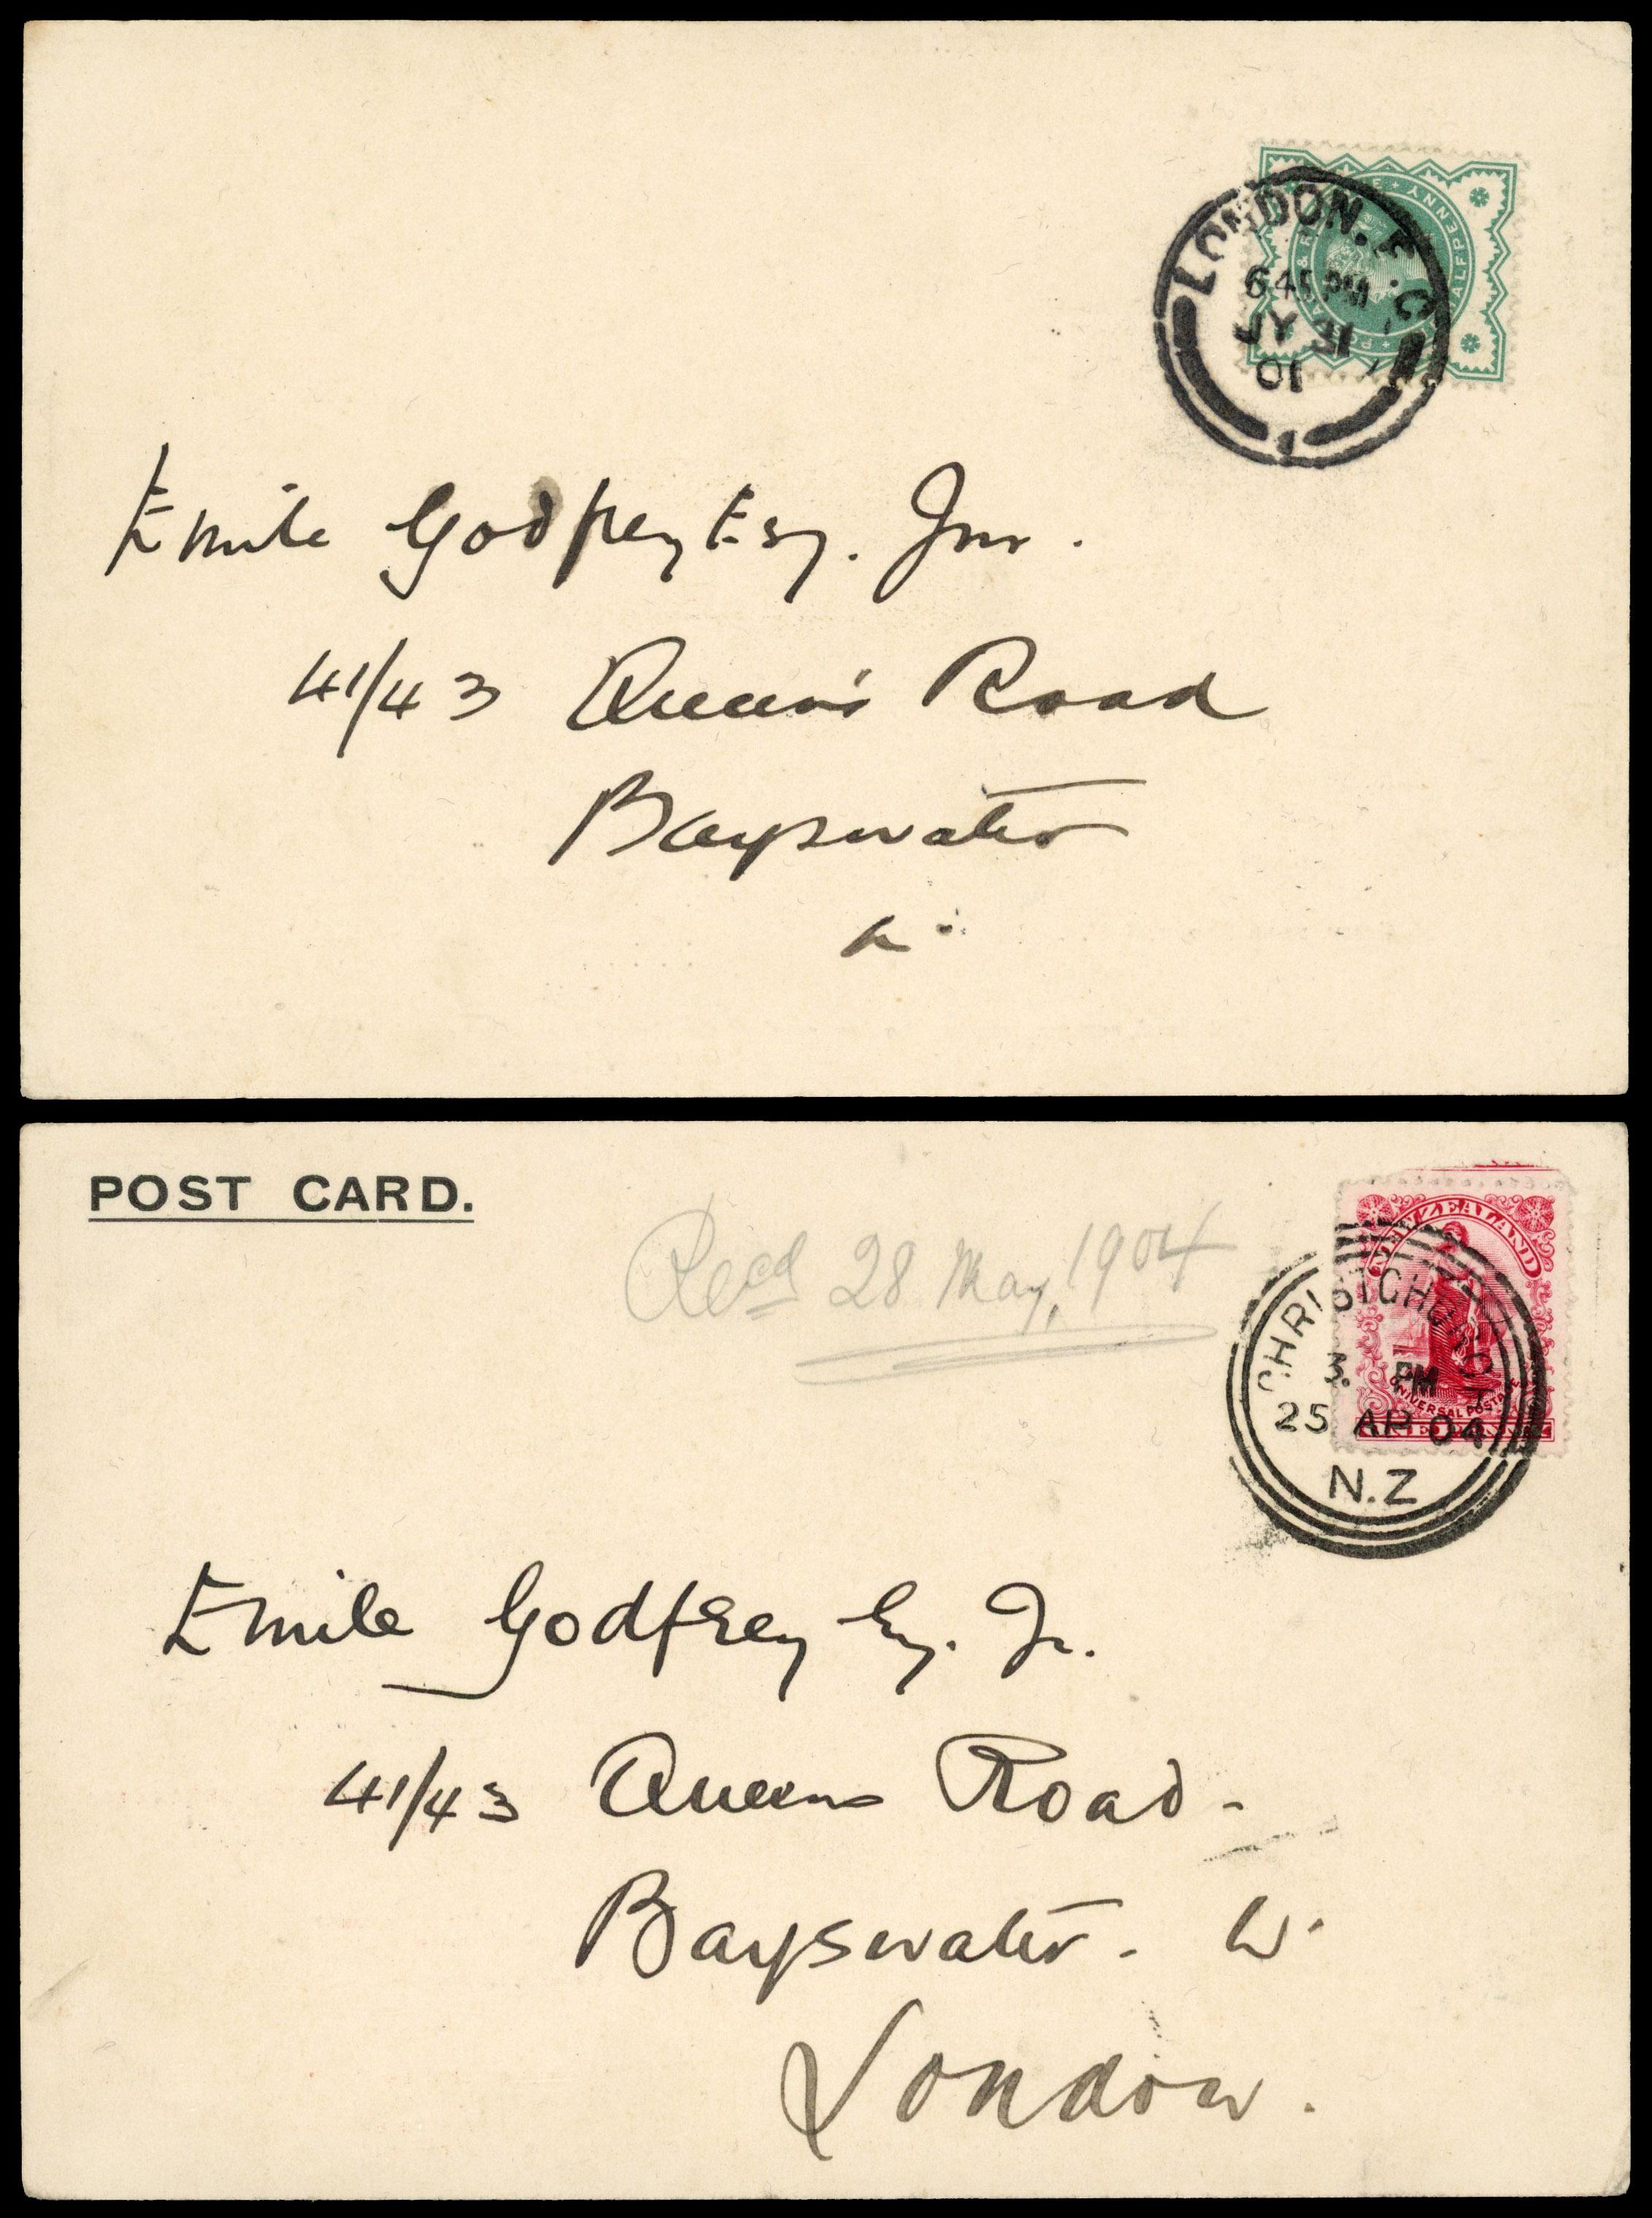 LONDON. E.C.
6 45 PM
JY 15
01
HALFPENNY
Emile Godfrey Esq. Jnr.
41/43 Queen's Road
Bayswater
W.
POST CARD.
Recd 28 May, 1904
NEW ZEALAND
UNIVERSAL POSTAGE
ONE PENNY
CHRISTCHURCH
3. PM
25 AP 04
N.Z
Emile Godfrey Esq. Jr.
41/43 Queens Road -
Bayswater. W.
London.